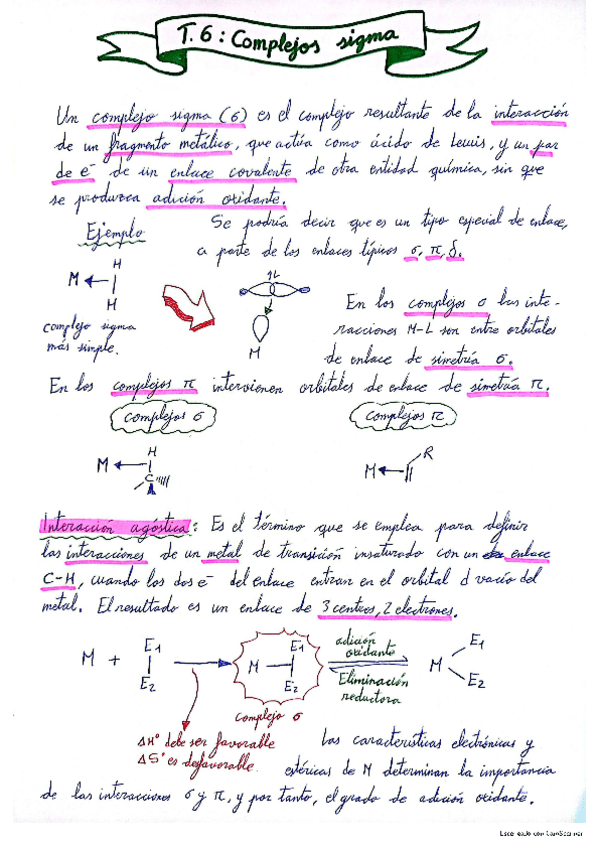 T.6: Complejos sigma
Un complejo sigma (σ) es el complejo resultante de la interacción
de un fragmento metálico, que actúa como ácido de Lewis, y un par
de e⁻ de un enlace covalente de otra entidad química, sin que
se produzca adición oxidante.
Ejemplo
Se podría decir que es un tipo especial de enlace,
a parte de los enlaces típicos σ, π, δ.
H
M
H
complejo sigma
más simple.
1L
M
En los complejos σ las inte-
racciones M-L son entre orbitales
de enlace de simetría σ.
En los complejos π intervienen orbitales de enlace de simetría π.
complejos σ
complejos π
H
M
C
R
M
Interacción agóstica: Es el término que se emplea para definir
las interacciones de un metal de transición insaturado con un enlace
C-H, cuando los dos e⁻ del enlace entran en el orbital d vacío del
metal. El resultado es un enlace de 3 centros, 2 electrones.
M + E1 E2
M E1 E2
complejo σ
adición oxidante
Eliminación reductora
M E1 E2
ΔH° debe ser favorable
ΔS° es desfavorable.
Las características electrónicas y
estéricas de M determinan la importancia
de las interacciones σ y π, y por tanto, el grado de adición oxidante.
Escaneado con CamScanner